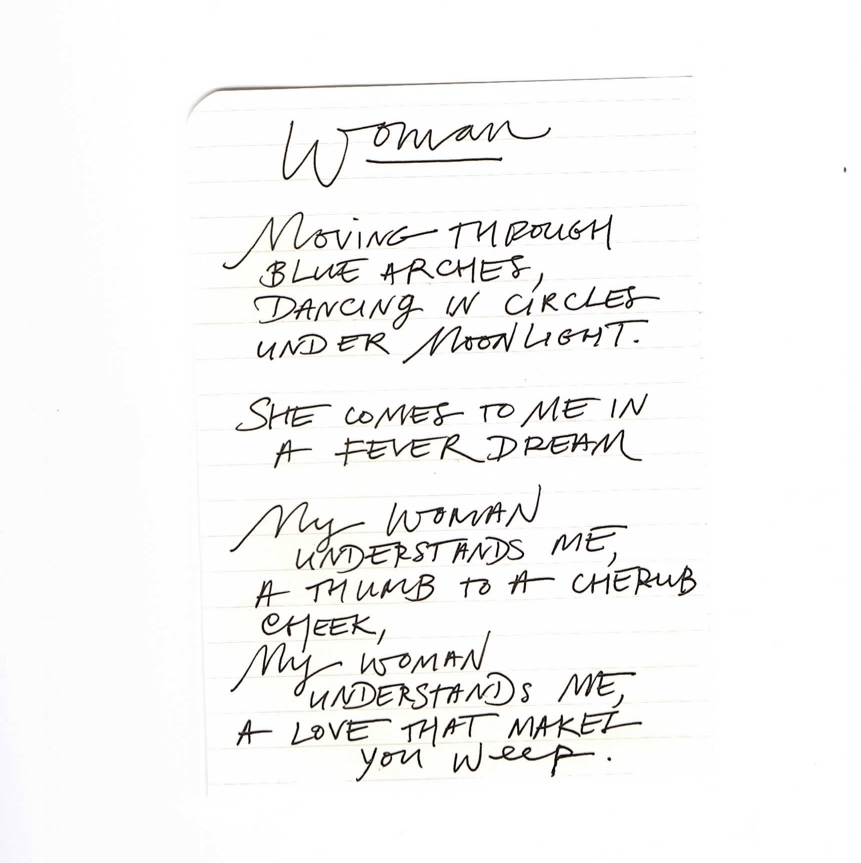 Woman
MOVING THROUGH
BLUE ARCHES,
DANCING IN CIRCLES
UNDER MOONLIGHT.
SHE COMES TO ME IN
A FEVER DREAM
My WOMAN
UNDERSTANDS ME,
A THUMB TO A CHERUB
CHEEK,
My WOMAN
UNDERSTANDS ME,
A LOVE THAT MAKES
you weep.